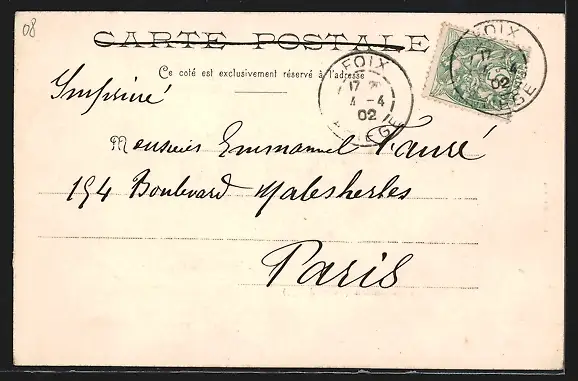 08
CARTE POSTALE
Ce côté est exclusivement réservé à l'adresse
FOIX
17
4-4
02
ARIEGE
FOIX
02
ARIEGE
Imprimé
Monsieur Emmanuel Fauré
154 Boulevard Malesherbes
Paris